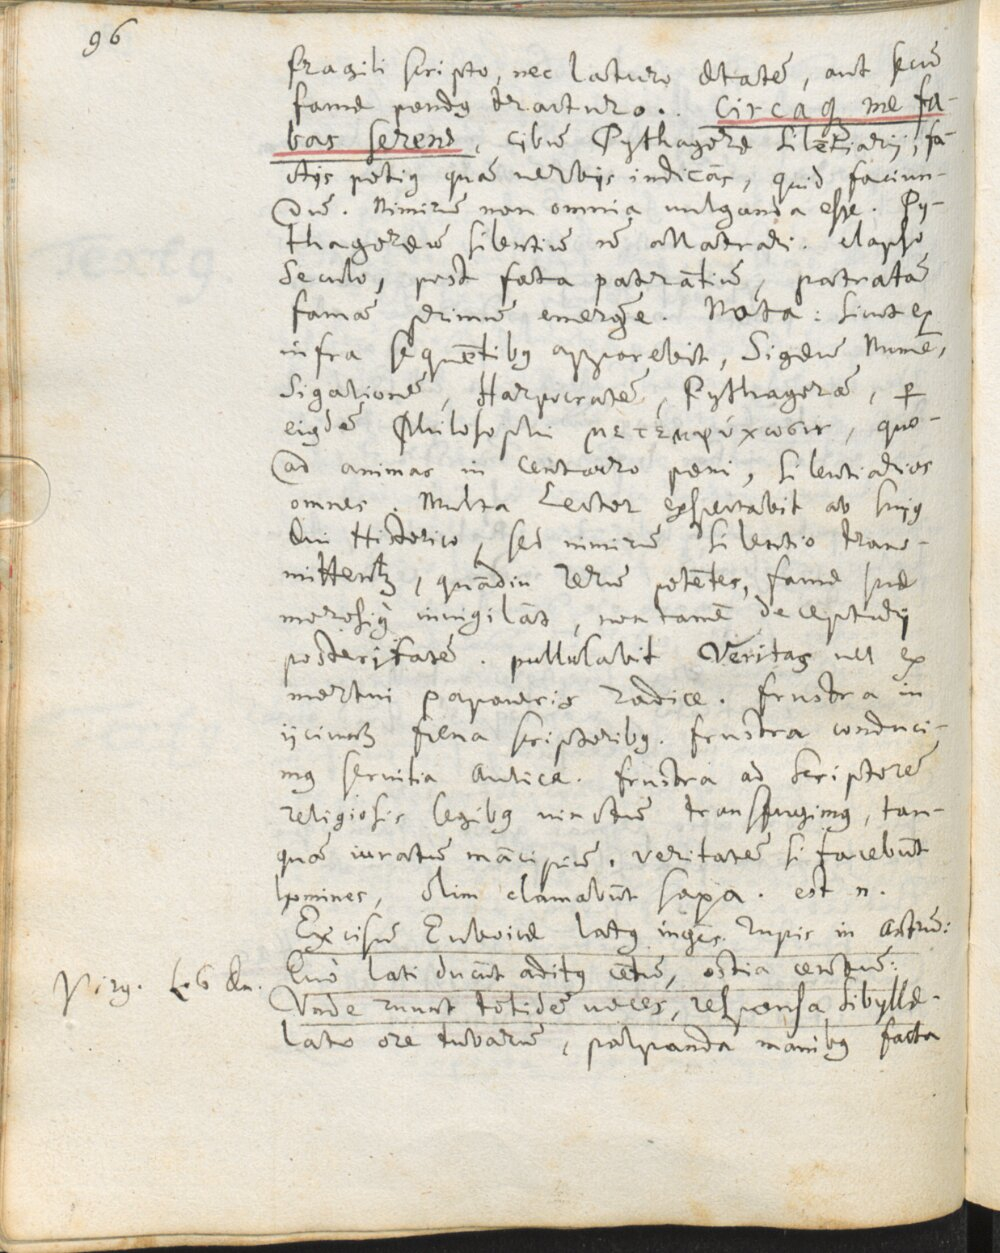 96
fragili scripto, nec laturo ętatē, aut secū
famę pondq tracturo.. Circaq me fa-
bas serens, cibū Pythagorę Silētiarij, fa-
ctis potiq quā verbis indicās, quid faciun-
dū. Nimirū non omnia vulganda esse. Py-
thagoreū silentiū nō elapso
Seculo, post fata patrantiū, patratā
famā primū emergere. Nota: sicut ex
infra sequētibq apparebit, Sigeū Numē,
Sigalionē, Harpocratē, Pythagorā, ꝑ
eiqdē Philosophi μετεμψύχωσιν, quo-
ad animas in centauro poni, silentiarios
omnes. Multa Lector exspectabit ab huiq
ęui Historico, sed nimirū silentio trans-
mittentur, quādiu rerū potētes, famę suę
morosiq invigilāt, non tamē decepturi
posteritatē. pullulabit Veritas vel ex
mortui papaueris radice. frustra in
ijciuntur frena scriptoribq. frustra conduci-
mq seruitia Aulica. frustra ad Scriptorē
religiosis legibq vinctū transfugimq, tan-
quā iuratū mācipiū. veritatē si tacebūt
homines, olim clamabūt saxa. est n.
Excisū Euboicę latq ingēs rupis in Antrū:
Quò lati ducūt aditq cētū, ostia centū:
Virg. L. 6 Æn.
Vnde ruunt totidē uoces, responsa Sibyllę.
lato ore tubarū, palpanda manibq facta